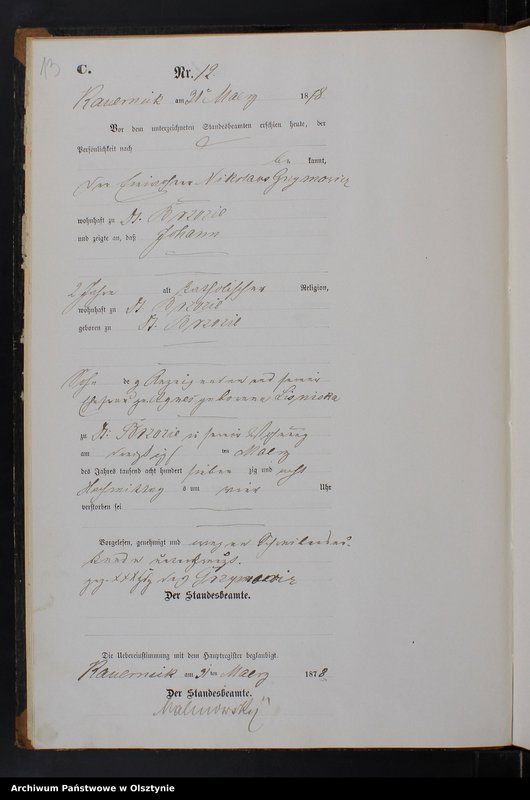 13
C.
Nr. 12.
Kauernick am 31 Maerz 1878
Vor dem unterzeichneten Standesbeamten erschien heute, der
Persönlichkeit nach
be kannt,
der Einwohner Nikolaus Grzymowicz
wohnhaft zu Kl. Brzozie
und zeigte an, daß Johann
2 Jahre alt katholischer Religion,
wohnhaft zu Kl. Brzozie
geboren zu Kl. Brzozie
Sohn des Anzeigenden und seiner
Ehefrau Agnes geborene
zu Kl. Brzozie in seiner Wohnung
am dreißigsten Maerz
des Jahres tausend acht hundert sieben zig und acht
Nachmittag s um vier Uhr
verstorben sei
Vorgelesen, genehmigt und wegen Schreibensun-
kunde unterkreuzt.
gez. XXX des Grzymowicz
Der Standesbeamte.
Die Uebereinstimmung mit dem Hauptregister beglaubigt.
Kauernick am 31 ten Maerz 1878.
Der Standesbeamte.
Malinowsky
Archiwum Państwowe w Olsztynie